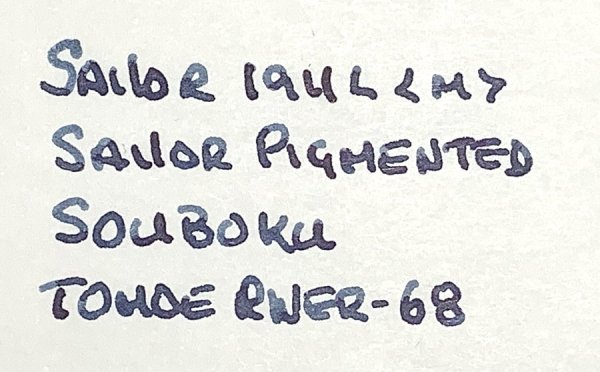 SAILOR 1911L <M>
SAILOR PIGMENTED
SOUBOKU
TOMOE RIVER-68